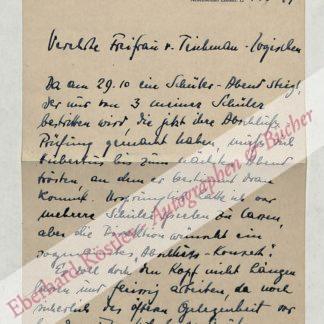 Verehrte Freifrau v. Tinkman-
Da am 29.10 ein Schüler-Abend steigt,
der nur von 3 meiner Schüler
bestritten wird, die jetzt ihre Abschluß
Prüfung gemacht haben, muß sich
Hubertus bis zum nächsten Abend
trösten, an dem er bestimmt dran
kommt. Ursprünglich hatte ich vor
mehrere Schüler spielen zu lassen,
aber die Direktion wünscht ein
sogenanntes "Abschluss-Konzert".
Er soll doch den Kopf nicht hängen
lassen und fleissig arbeiten, da noch
sicherlich des öfteren Gelegenheit
Eberhard Köstler Autographen & Bücher